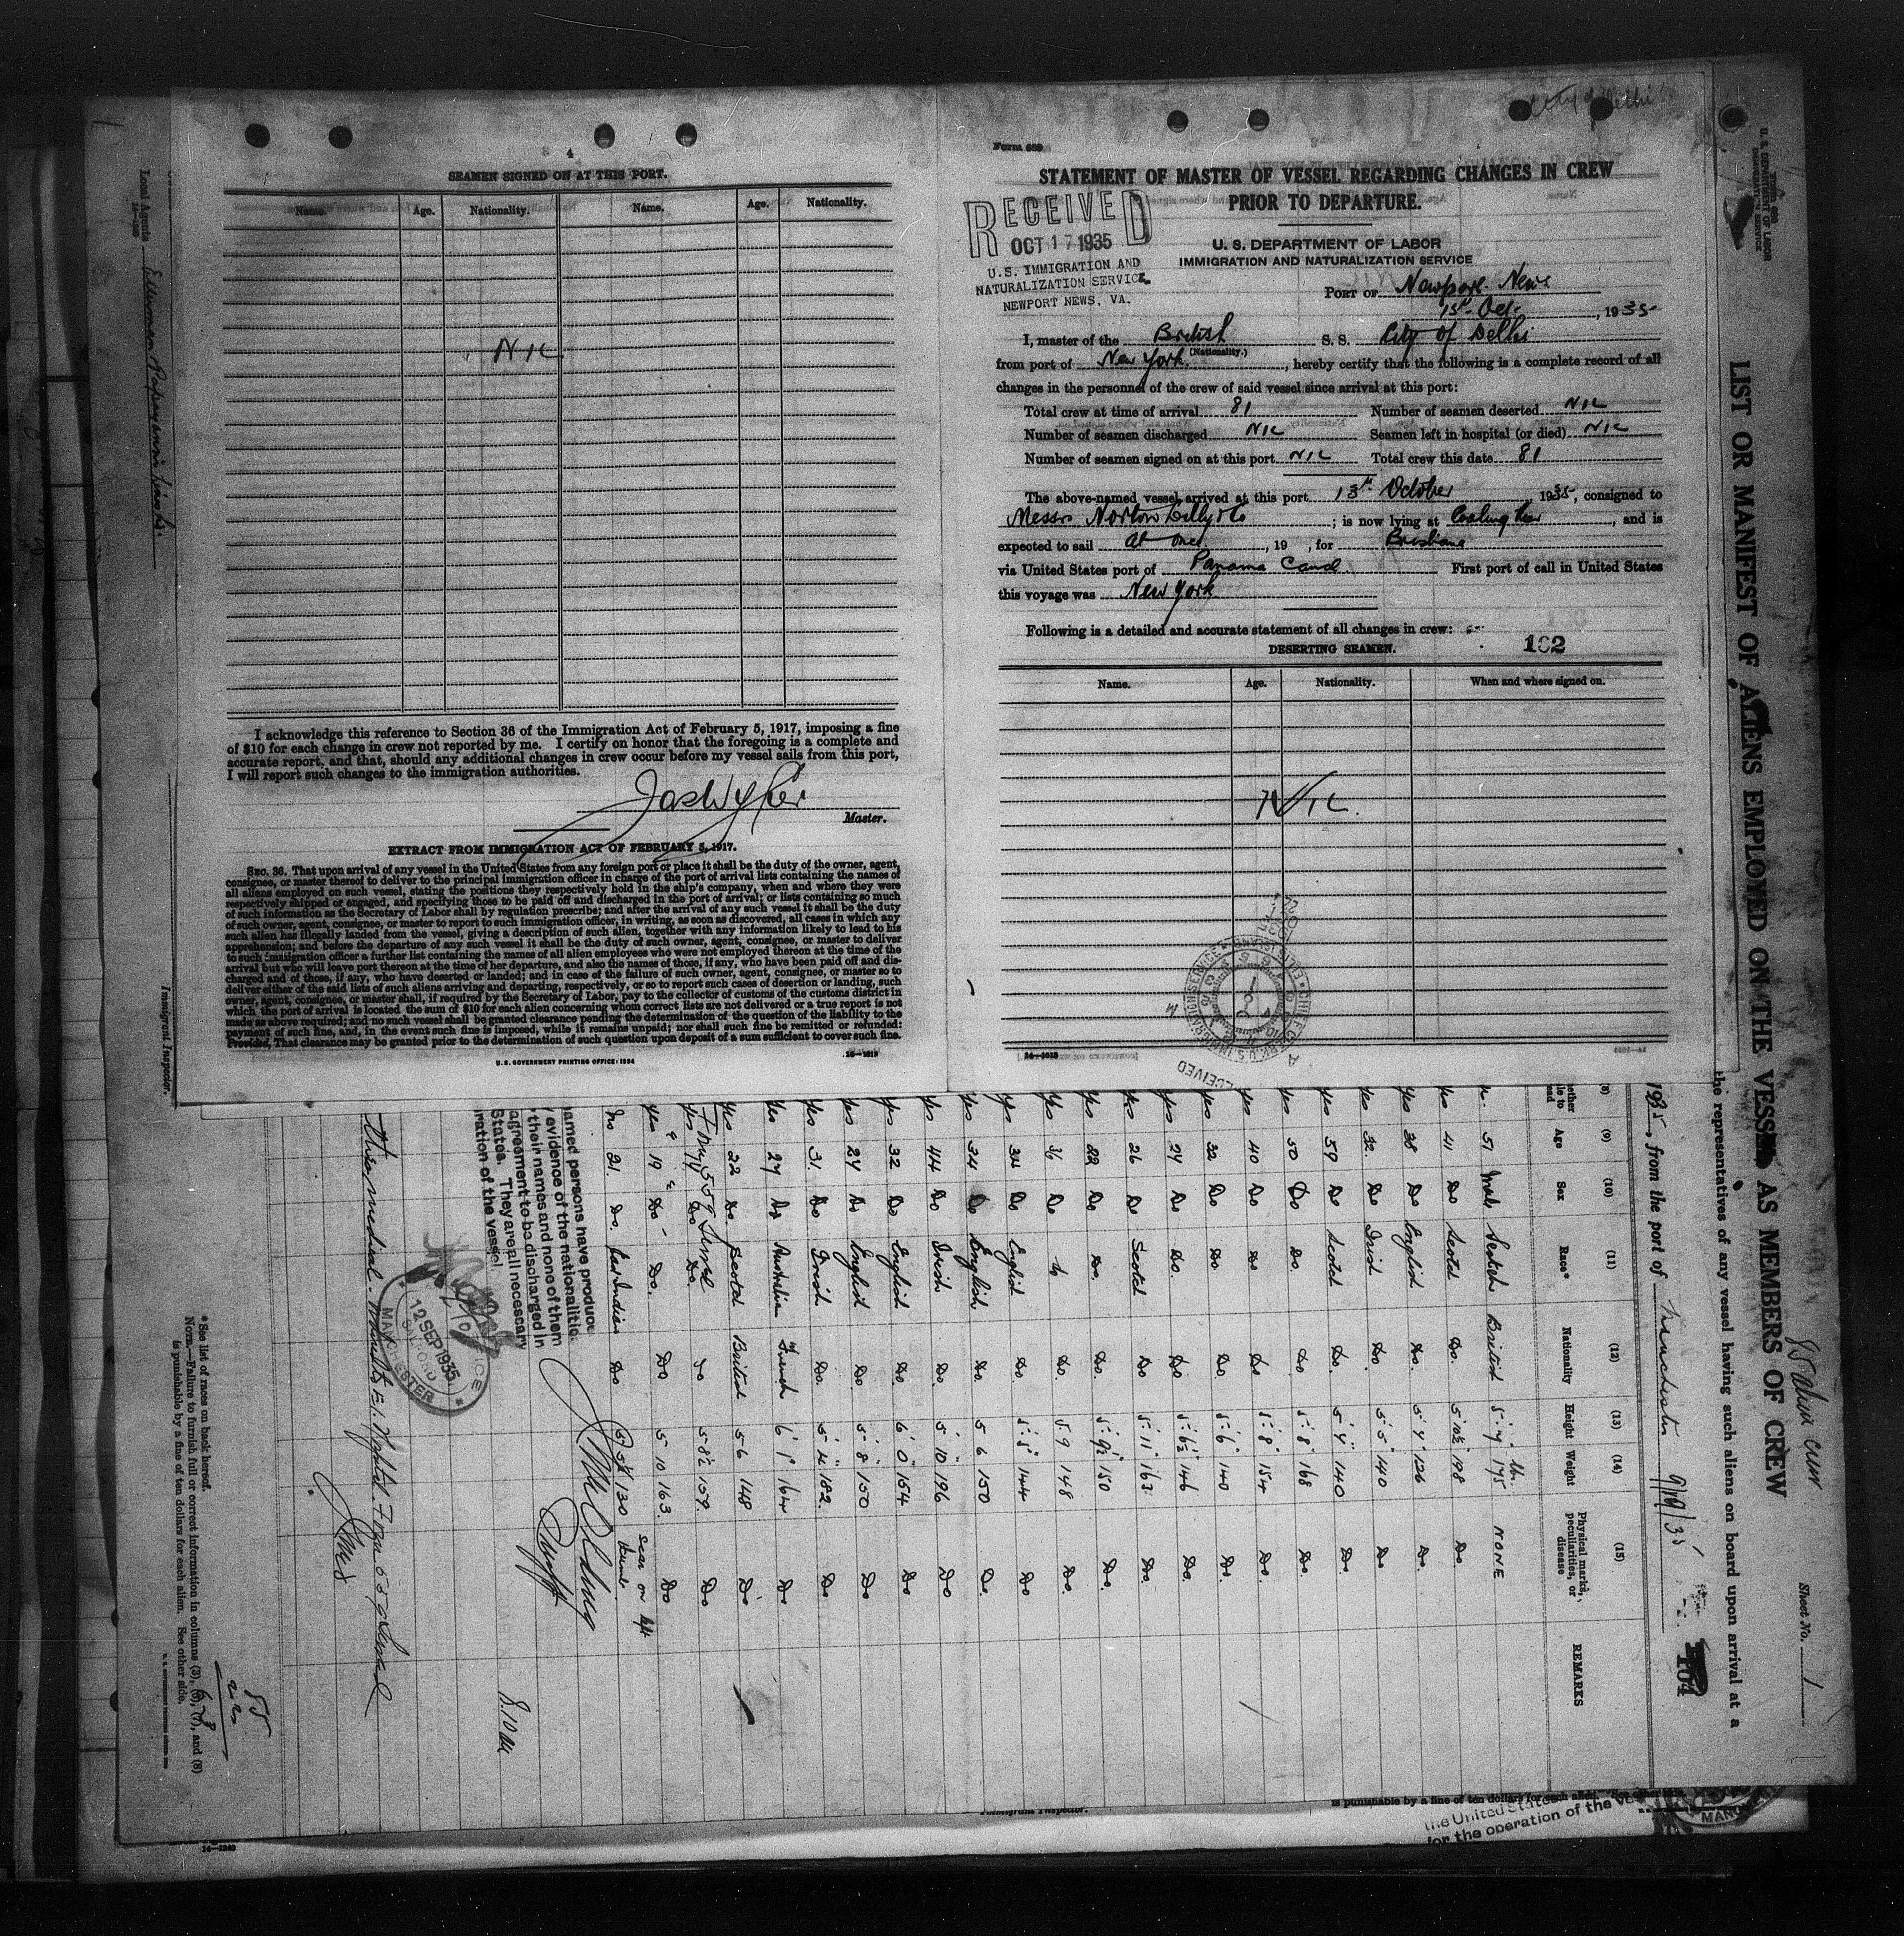 4
SEAMEN SIGNED ON AT THIS PORT.
Name. Age. Nationality. Name. Age. Nationality.
NIL
I acknowledge this reference to Section 36 of the Immigration Act of February 5, 1917, imposing a fine
of $10 for each change in crew not reported by me. I certify on honor that the foregoing is a complete and
accurate report, and that, should any additional changes in crew occur before my vessel sails from this port,
I will report such changes to the immigration authorities.
Master.
EXTRACT FROM IMMIGRATION ACT OF FEBRUARY 5, 1917.
SEC. 36. That upon arrival of any vessel in the United States from any foreign port or place it shall be the duty of the owner, agent,
consignee, or master thereof to deliver to the principal immigration officer in charge of the port of arrival lists containing the names of
all aliens employed on such vessel, stating the positions they respectively hold in the ship's company, when and where they were
respectively shipped or engaged, and specifying those to be paid off and discharged in the port of arrival; or lists containing so much
of such information as the Secretary of Labor shall by regulation prescribe; and after the arrival of any such vessel it shall be the duty
of such owner, agent, consignee, or master to report to such immigration officer, in writing, as soon as discovered, all cases in which any
such alien has illegally landed from the vessel, giving a description of such alien, together with any information likely to lead to his
apprehension; and before the departure of any such vessel it shall be the duty of such owner, agent, consignee, or master to deliver
to such immigration officer a further list containing the names of all alien employees who were not employed thereon at the time of the
arrival but who will leave port thereon at the time of her departure, and also the names of those, if any, who have been paid off and dis-
charged and of those, if any, who have deserted or landed; and in case of the failure of such owner, agent, consignee, or master so to
deliver either of the said lists of such aliens arriving and departing, respectively, or so to report such cases of desertion or landing, such
owner, agent, consignee, or master shall, if required by the Secretary of Labor, pay to the collector of customs of the customs district in
which the port of arrival is located the sum of $10 for each alien concerning whom correct lists are not delivered or a true report is not
made as above required; and no such vessel shall be granted clearance pending the determination of the question of the liability to the
payment of such fine, and, in the event such fine is imposed, while it remains unpaid; nor shall such fine be remitted or refunded:
Provided, That clearance may be granted prior to the determination of such question upon deposit of a sum sufficient to cover such fine.
U. S. GOVERNMENT PRINTING OFFICE: 1934
City of Delhi
Form 689
STATEMENT OF MASTER OF VESSEL REGARDING CHANGES IN CREW
PRIOR TO DEPARTURE.
RECEIVED
OCT 17 1935
U.S. IMMIGRATION AND
NATURALIZATION SERVICE
NEWPORT NEWS, VA.
U. S. DEPARTMENT OF LABOR
IMMIGRATION AND NATURALIZATION SERVICE
PORT OF Newport News
Oct. , 1935
I, master of the British S. S. City of Delhi
(Nationality.)
from port of New York , hereby certify that the following is a complete record of all
changes in the personnel of the crew of said vessel since arrival at this port:
Total crew at time of arrival 81 Number of seamen deserted NIL
Number of seamen discharged NIL Seamen left in hospital (or died) NIL
Number of seamen signed on at this port NIL Total crew this date 81
The above-named vessel arrived at this port 13th October , 1935, consigned to
Messrs Norton Lilly & Co ; is now lying at Coaling Pier , and is
expected to sail At once , 19 , for Brisbane
via United States port of Panama Canal First port of call in United States
this voyage was New York
Following is a detailed and accurate statement of all changes in crew:
162
DESERTING SEAMEN.
Name. Age. Nationality. When and where signed on.
NIL
RECEIVED
U. S. DEPARTMENT OF LABOR
IMMIGRANT SERVICE
Form 680
LIST OR MANIFEST OF ALIENS EMPLOYED ON THE VESSEL AS MEMBERS OF CREW
Sheet No. 1
the representatives of any vessel having such aliens on board upon arrival at a
1935, from the port of Manchester 9/19/35
104
(8) (9) (10) (11) (12) (13) (14) (15)
Age Sex Race* Nationality Height Weight Physical marks, peculiarities, or disease REMARKS
51 Male Scotch British 5'-4" 175 NONE
yes 41 Do Scotch Do. 5'10½ 198 Do.
yes 38 Do English Do. 5'-4" 126 Do.
yes 32 Do Irish Do. 5'-5" 140 Do
yes 59 Do Scotch Do. 5'-4" 140 Do.
yes 50 Do Do. Do 5'-8" 168 Do.
yes 40 Do Do Do 5'-8" 154 Do.
yes 32 Do Do Do. 5'-6" 140 Do.
yes 24 Do Do. Do 5'-6½" 146 Do.
yes 26 Do Scotch Do 5'-11" 163 Do.
yes 22 Do Do. Do. 5'-9½" 150 Do.
yes 36 Do Do. 5.9 148 Do.
yes 34 Do English Do. 5'-5" 144 Do
yes 34 Do English Do. 5 6 150 Do.
yes 44 Do Irish Do. 5 10 196 Do
yes 32 Do English Do. 6'0" 154 Do
yes 24 Do English Do. 5'-8" 150 Do
yes 31. Do Irish Do. 5'-4" 182. Do
yes 27 Do Australia French 6'1" 164 Do
yes 22 Do. Scotch British 5 6 148 Do
yes Do Do. 5 8½ 159. Do
yes 19 Do Do. Do 5 10 163. Do
No 21. Do. Do 5 5½ 130 scar on left
named persons have produce
evidence of the nationalitie
their names and none of them
agreement to be discharged in
States. They are all necessary
ration of the vessel.
12 SEP 1935
SALFORD
MANCHESTER
*See list of races on back hereof.
NOTE.—Failure to furnish full or correct information in columns (3), (6), (7), and (8)
is punishable by a fine of ten dollars for each alien. See other side.
Local Agents
Immigrant Inspector.
Immigrant Inspector.
is punishable by a fine of ten dollars for each alien.
the United States
for the operation of the
14—1240